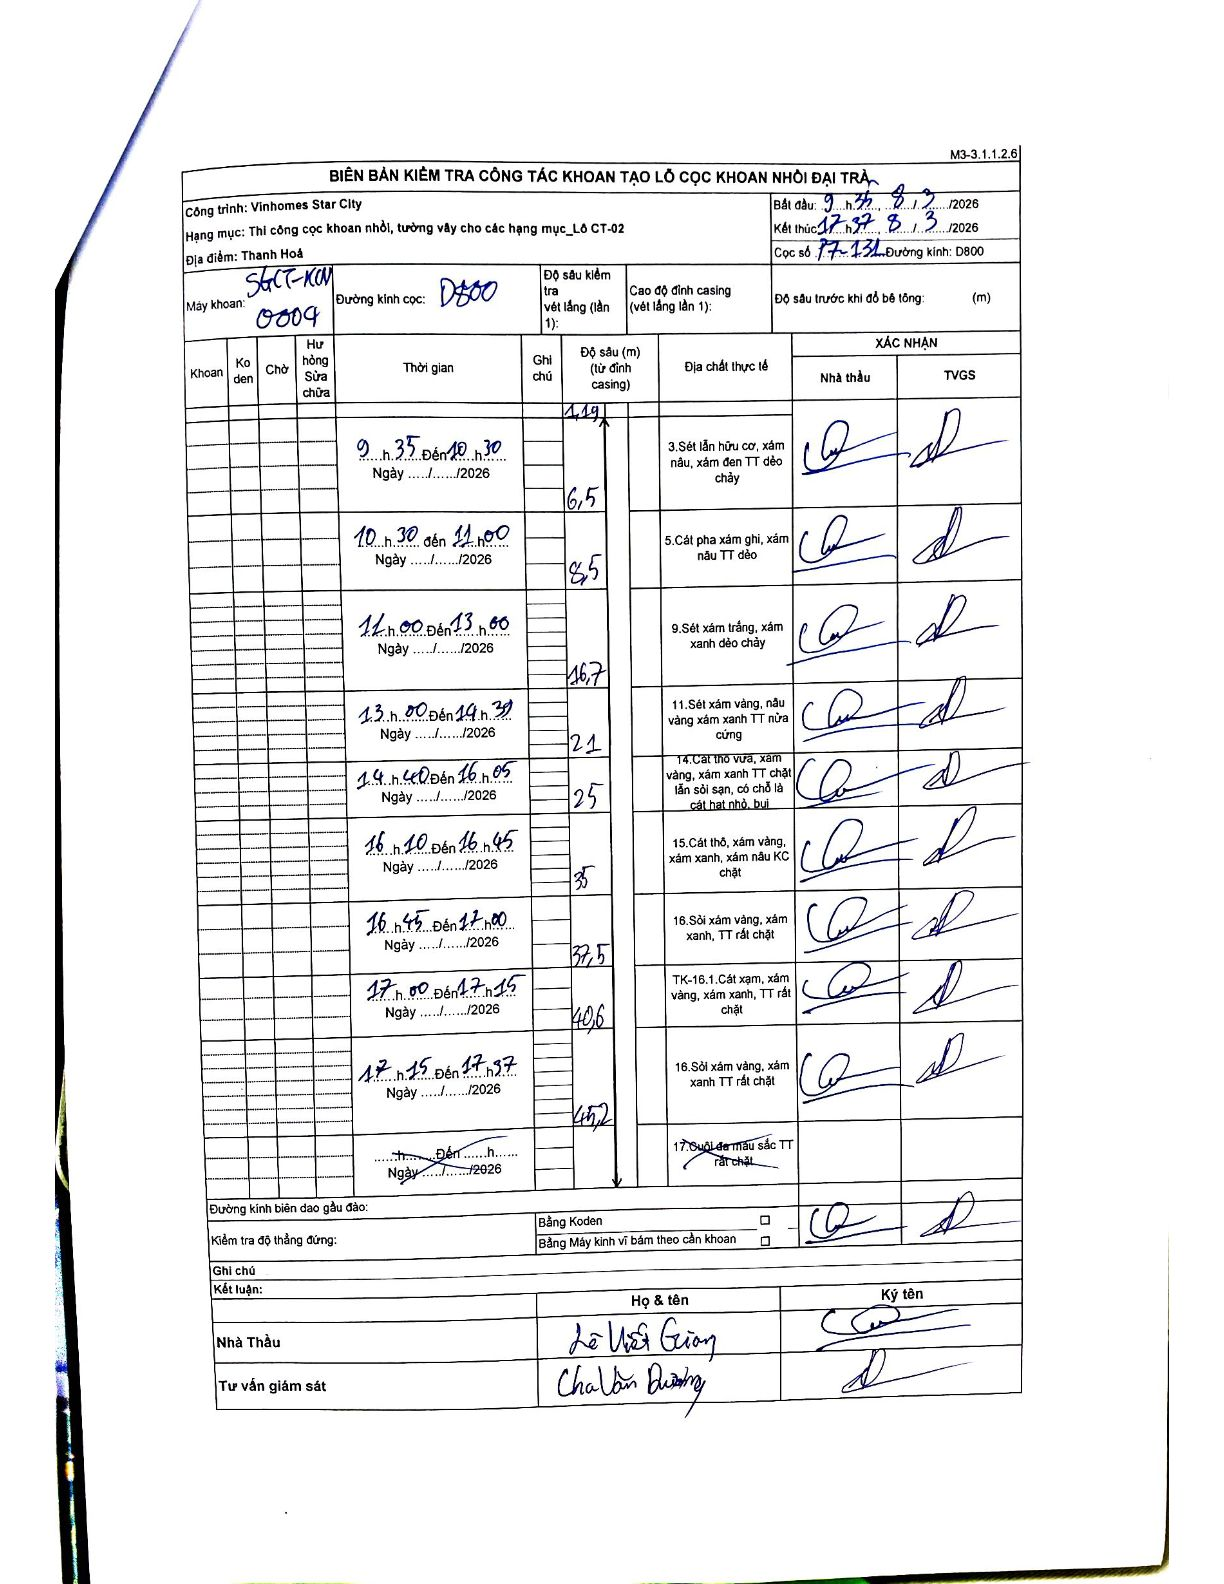 M3-3.1.1.2.6
BIÊN BẢN KIỂM TRA CÔNG TÁC KHOAN TẠO LỖ CỌC KHOAN NHỒI ĐẠI TRÀ
Công trình: Vinhomes Star City
Hạng mục: Thi công cọc khoan nhồi, tường vây cho các hạng mục_Lô CT-02
Địa điểm: Thanh Hoá
Bắt đầu: 9 h 35, 8 / 3 /2026
Kết thúc: 17 h 37, 8 / 3 /2026
Cọc số P7-131 Đường kính: D800
Máy khoan: 0009
Đường kính cọc: D800
Độ sâu kiểm tra vét lắng (lần 1):
Cao độ đỉnh casing (vét lắng lần 1):
Độ sâu trước khi đổ bê tông: (m)
Khoan
Ko den
Chờ
Hư hỏng Sửa chữa
Thời gian
Ghi chú
Độ sâu (m) (từ đỉnh casing)
Địa chất thực tế
XÁC NHẬN
Nhà thầu
TVGS
1,19
9 h 35 Đến 10 h 30
Ngày ...../....../2026
6,5
3.Sét lẫn hữu cơ, xám nâu, xám đen TT dẻo chảy
10 h 30 đến 11 h 00
Ngày ...../....../2026
8,5
5.Cát pha xám ghi, xám nâu TT dẻo
11 h 00 Đến 13 h 00
Ngày ...../....../2026
16,7
9.Sét xám trắng, xám xanh dẻo chảy
13 h 00 Đến 14 h 39
Ngày ...../....../2026
21
11.Sét xám vàng, nâu vàng xám xanh TT nửa cứng
14 h 40 Đến 16 h 05
Ngày ...../....../2026
25
14.Cát thô vừa, xám vàng, xám xanh TT chặt lẫn sỏi sạn, có chỗ là cát hạt nhỏ, bụi
16 h 10 Đến 16 h 45
Ngày ...../....../2026
35
15.Cát thô, xám vàng, xám xanh, xám nâu KC chặt
16 h 45 Đến 17 h 00
Ngày ...../....../2026
37,5
16.Sỏi xám vàng, xám xanh, TT rất chặt
17 h 00 Đến 17 h 15
Ngày ...../....../2026
40,6
TK-16.1.Cát xạm, xám vàng, xám xanh, TT rất chặt
17 h 15 Đến 17 h 37
Ngày ...../....../2026
45,2
16.Sỏi xám vàng, xám xanh TT rất chặt
......h.......Đến ......h......
Ngày ...../....../2026
17.Cuội đa màu sắc TT rất chặt
Đường kính biên dao gầu đào:
Kiểm tra độ thẳng đứng:
Bằng Koden
Bằng Máy kinh vĩ bám theo cần khoan
Ghi chú
Kết luận:
Họ & tên
Ký tên
Nhà Thầu
Lê Viết Giang
Tư vấn giám sát
Văn Dương